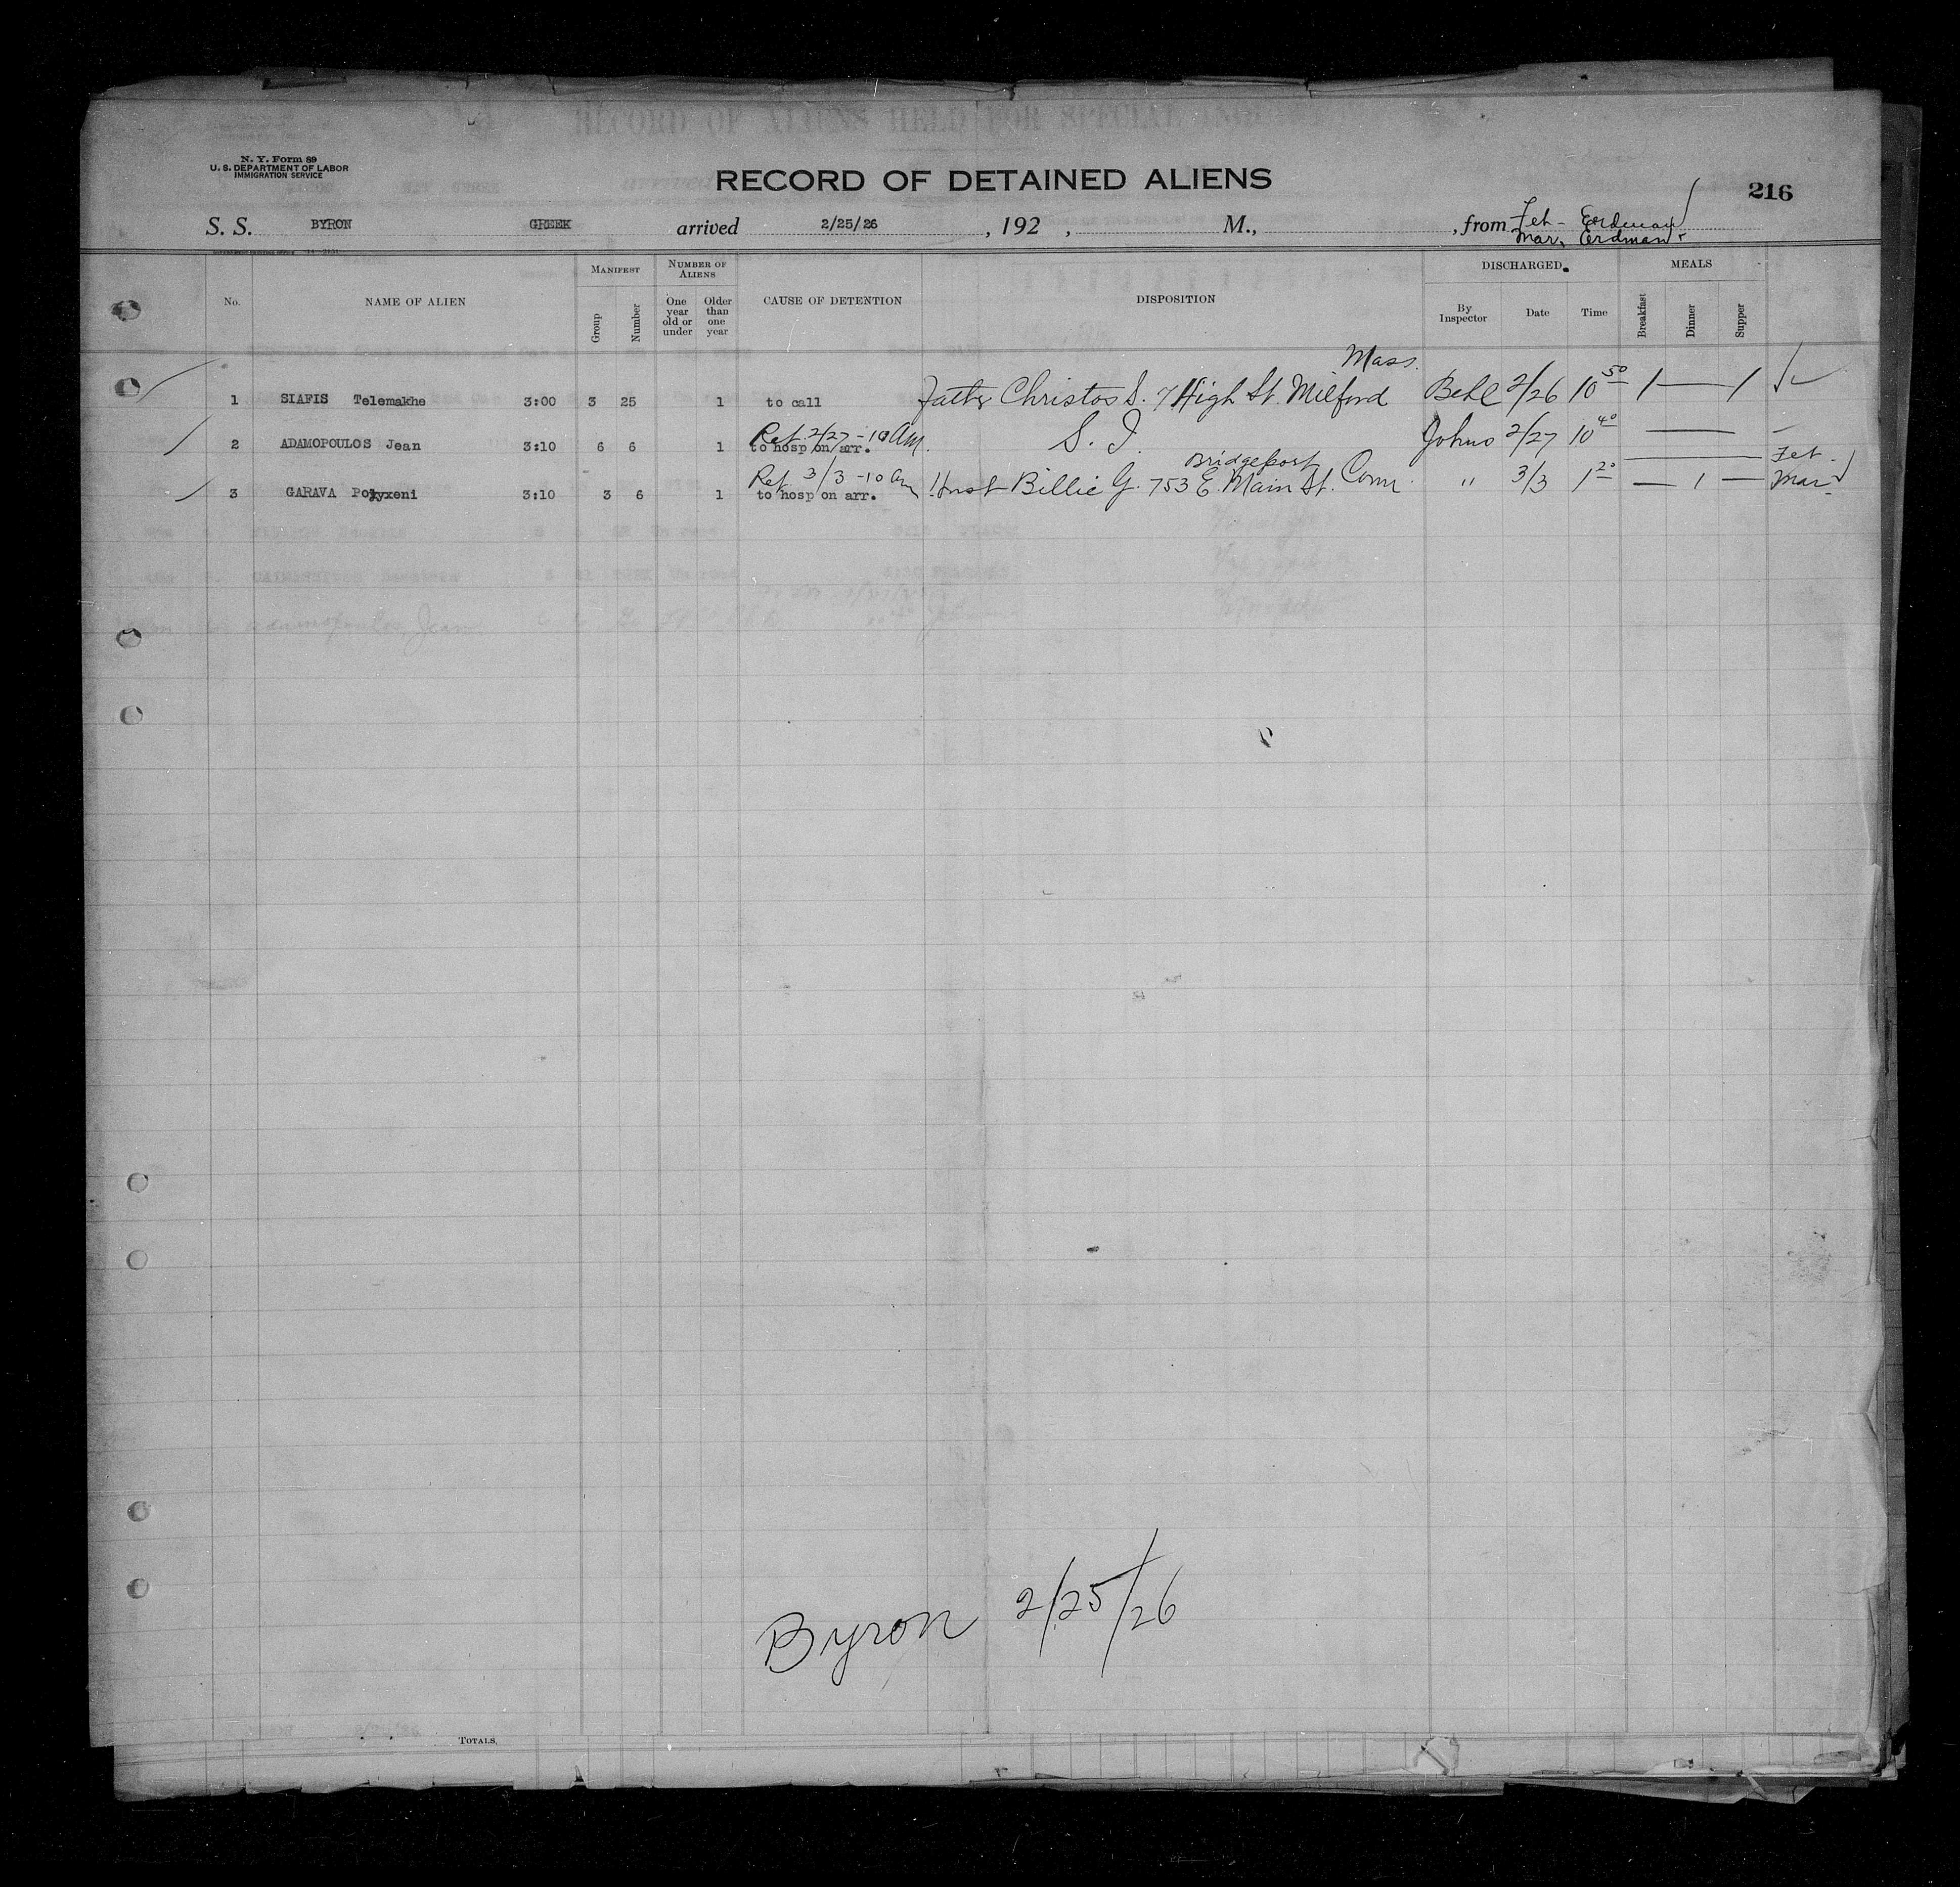 N. Y. Form 89
U. S. DEPARTMENT OF LABOR
IMMIGRATION SERVICE
RECORD OF DETAINED ALIENS
216
S. S. BYRON GREEK arrived 2/25/26 , 192 , M., , from Feb - Erdman
Mar. Erdman
No. NAME OF ALIEN MANIFEST Group Number NUMBER OF ALIENS One year old or under Older than one year CAUSE OF DETENTION DISPOSITION DISCHARGED. By Inspector Date Time MEALS Breakfast Dinner Supper
Mass.
1 SIAFIS Telemakhe 3:00 3 25 1 to call Father Christos S. 7 High St. Milford 2/26 10 50 1 — 1
Ret 2/27 - 10 AM.
2 ADAMOPOULOS Jean 3:10 6 6 1 to hosp on arr. S. I. Johns 2/27 10 40 — -
Ret 3/3 - 10 am Bridgeport — Feb.
3 GARAVA Polyxeni 3:10 3 6 1 to hosp on arr. Husb Billie G. 753 E. Main St. Conn. " 3/3 1 20 — 1 — Mar.
Byron 2/25/26
TOTALS,